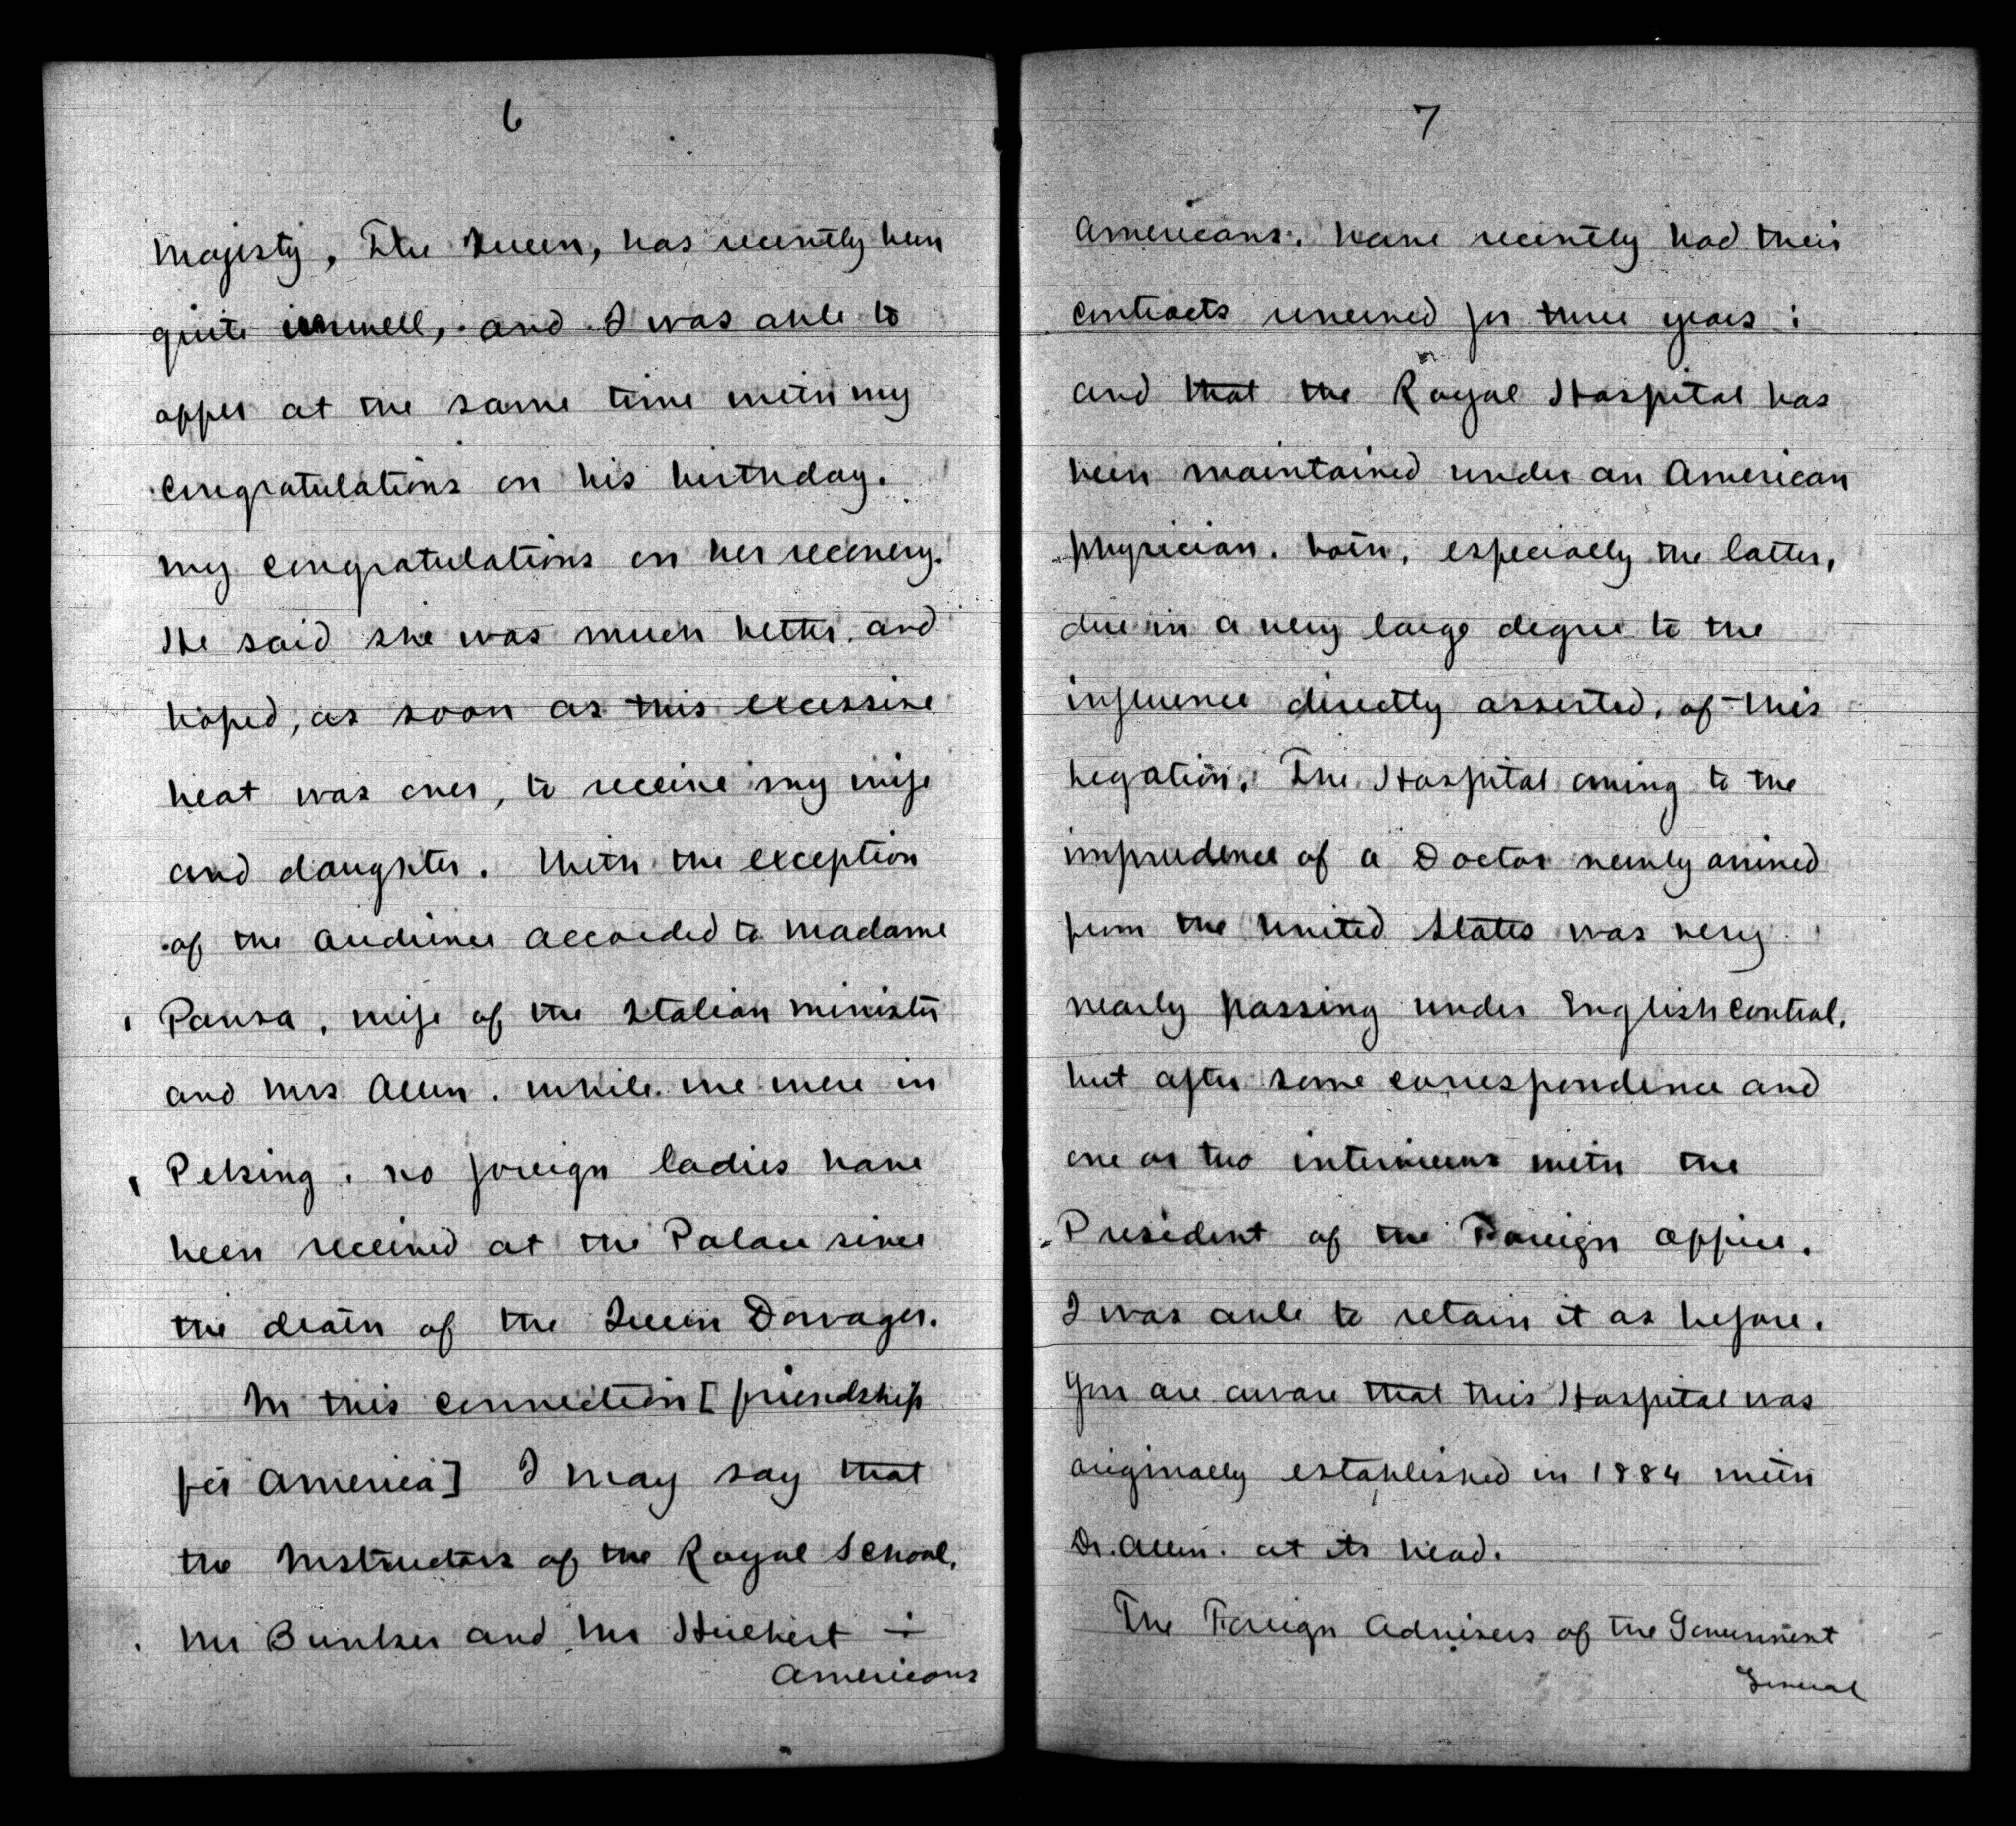 6
Majesty, The Queen, has recently been
quite unwell, and I was able to
offer at the same time with my
congratulations on his birthday.
my congratulations on her recovery.
He said she was much better, and
hoped, as soon as this excessive
heat was over, to receive my wife
and daughter. With the exception
of the audience accorded to Madame
Pansa, wife of the Italian minister
and Mrs Allen. while we were in
Peking. no foreign ladies have
been received at the Palace since
the death of the Queen Dowager.
In this connection [friendship
for America] I may say that
the Instructors of the Royal School,
Mr Bunker and Mr Hulbert -:
Americans
7
Americans. have recently had their
contracts renewed for three years :
and that the Royal Hospital has
been maintained under an American
physician. both, especially the latter,
due in a very large degree to the
influence directly asserted, of this
Legation. The Hospital owing to the
imprudence of a Doctor newly arrived
from the United States was very
nearly passing under English control,
but after some correspondence and
one or two interviews with the
President of the Foreign Office.
I was able to retain it as before.
You are aware that this Hospital was
originally established in 1884 with
Dr. Allen. at its head.
The Foreign Advisers of the Government
General